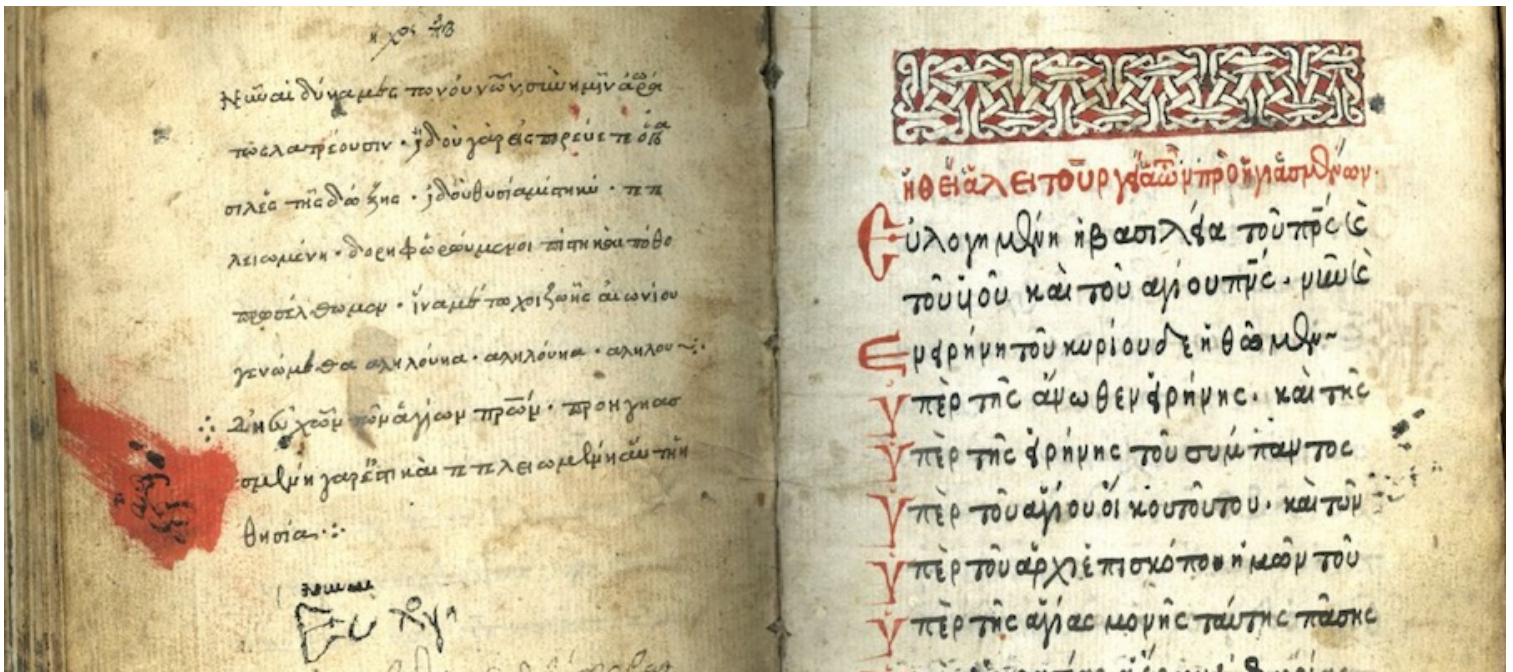 ἦχος πβ
Νῦν αἱ δύναμεις τον όυνῶν, σὺν ἡμῖν ἀορά
τως λατρέουσιν · ἰδοὺ γὰρ εἰσπορεύετε ὁ βα
σιλεὺς τῆς δόξης · ἰδοὺ θυσία μυστικὶ · τετε
λειωμένη · δορηφωρούμενοι πίστη καὶ πόθο
προσέλθωμεν · ἵνα μέτοχοι ζωῆς αἰωνίου
γενώμεθα αλιλούηα · αλιλούηα · αλιλου
τῶν ἁγίων · προηγιασ
σμένη γάρ ἐστι καὶ τετελειωμένη αὕτη ἡ
θησία
ἡ θεία λειτουργία τῶν προηγιασμένων.
Εὐλογημένη ἡ βασιλεία τοῦ πρς κὲ
τοῦ υἱοῦ καὶ τοῦ αγίου πνς · νῦν κὲ
Εν εἰρήνη τοῦ κυρίου δεηθῶμεν
Ὑπὲρ τῆς ἄνωθεν εἰρήνης · καὶ τῆς
Ὑπὲρ τῆς εἰρήνης τοῦ σύμπαντος
Ὑπὲρ τοῦ αγίου οἴκου τούτου · καὶ τῶν
Ὑπὲρ τοῦ αρχιἐπισκόπου ἡμῶν τοῦ
Ὑπὲρ τῆς αγίας μονῆς ταύτης πάσης